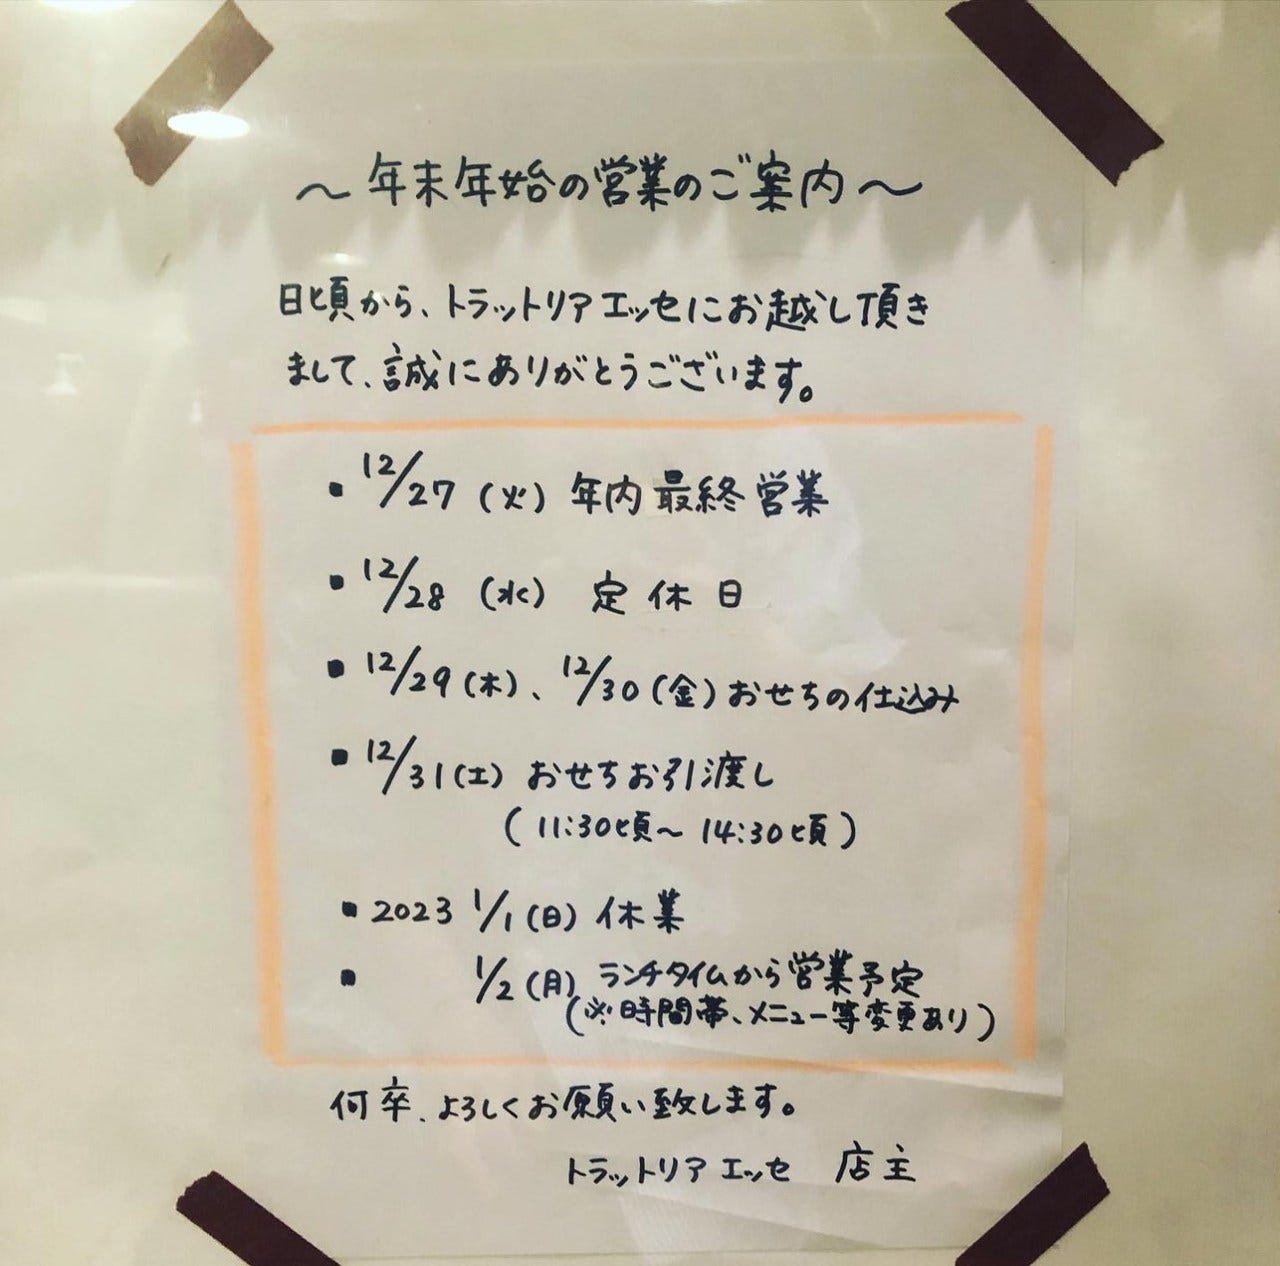 ～年末年始の営業のご案内～
日頃から、トラットリアエッセにお越し頂き
まして、誠にありがとうございます。
▪ 12/27（火）年内最終営業
▪ 12/28（水）定休日
▪ 12/29（木）、12/30（金）おせちの仕込み
▪ 12/31（土）おせちお引渡し
（11:30頃～14:30頃）
▪ 2023 1/1（日）休業
▪ 1/2（月）ランチタイムから営業予定
（※時間帯、メニュー等変更あり）
何卒、よろしくお願い致します。
トラットリア エッセ 店主